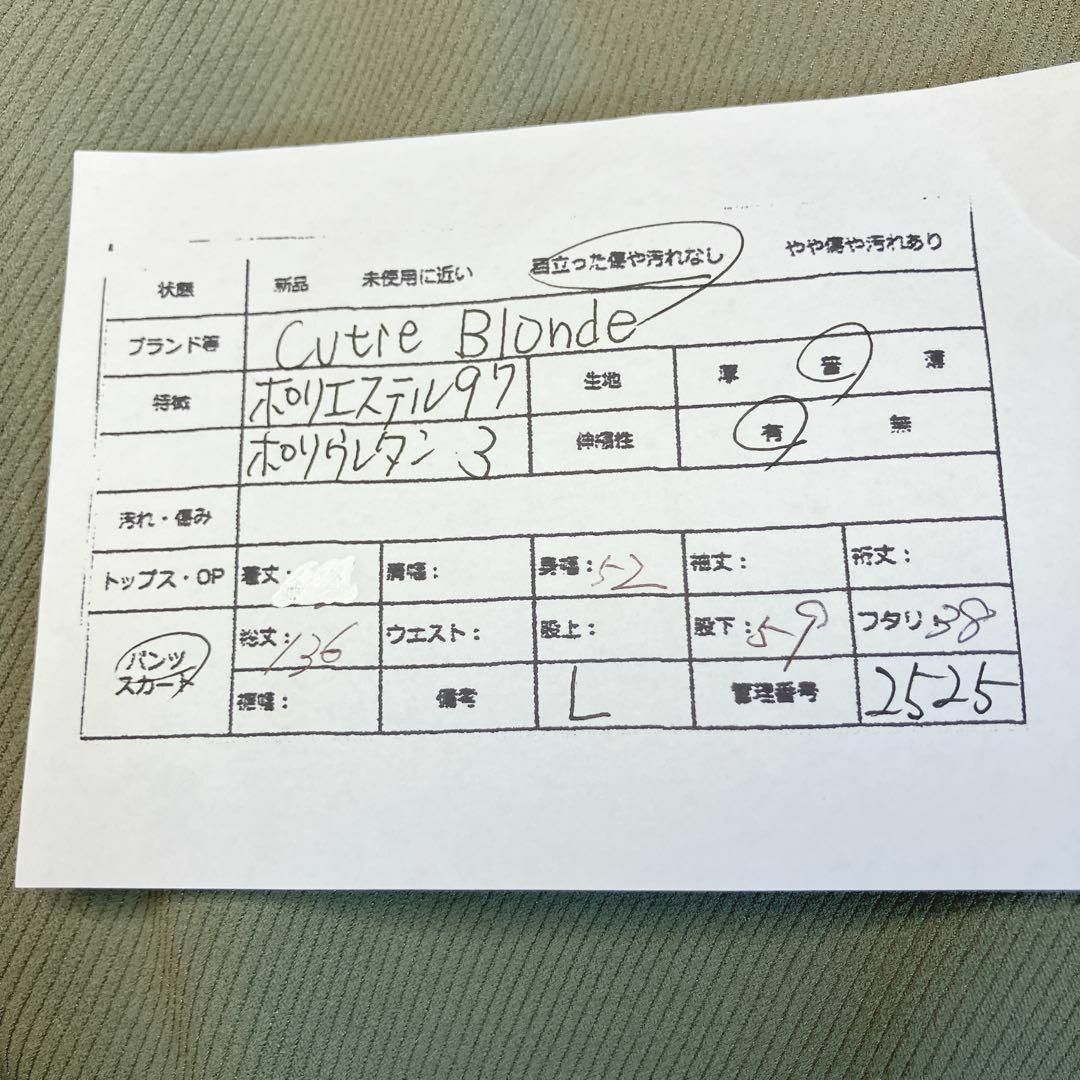 状態 新品 未使用に近い 目立った傷や汚れなし やや傷や汚れあり
ブランド等 Cutie Blonde
特徴 ポリエステル97 生地 厚 普 薄
ポリウレタン 3 伸縮性 有 無
汚れ・傷み
トップス・OP 着丈: 肩幅: 身幅:52 袖丈: 裄丈:
パンツ スカート 総丈:136 ウエスト: 股上: 股下:59 ワタリ:38
裾幅: 備考 L 管理番号 2525